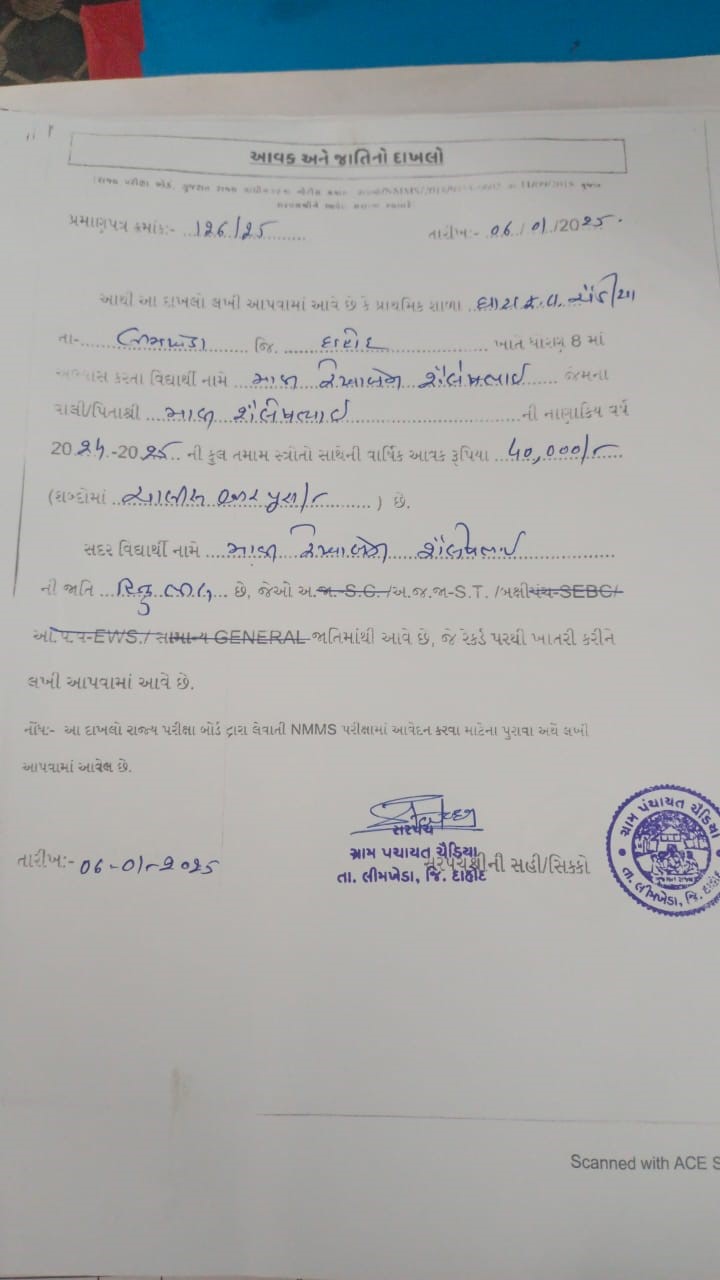 આવક અને જાતિનો દાખલો
(રાજ્ય પરીક્ષા બોર્ડ, ગુજરાત રાજ્ય
પ્રમાણપત્ર ક્રમાંક:- 126/25 તારીખ:- 06/01/2025
આથી આ દાખલો લખી આપવામાં આવે છે કે પ્રાથમિક શાળા
તા- લીમખેડા જિ. દાહોદ ખાતે ધોરણ 8 માં
અભ્યાસ કરતા વિદ્યાર્થી નામે શૈલેષભાઈ જેમના
વાલી/પિતાશ્રી શૈલેષભાઈ ની નાણાકિય વર્ષ
2024-2025 ની કુલ તમામ સ્ત્રોતો સાથેની વાર્ષિક આવક રૂપિયા 40,000/-
(શબ્દોમાં ચાલીસ હજાર પુરા/- ) છે.
સદર વિદ્યાર્થી નામે શૈલેષભાઈ
ની જાતિ હિન્દુ ભીલ છે, જેઓ અ.જા.-S.C. /અ.જ.જા-S.T. /બક્ષીપંચ-SEBC/
આ.પ.વ-EWS./ સામાન્ય GENERAL જાતિમાંથી આવે છે, જે રેકર્ડ પરથી ખાતરી કરીને
લખી આપવામાં આવે છે.
નોંધ:- આ દાખલો રાજ્ય પરીક્ષા બોર્ડ દ્વારા લેવાતી NMMS પરીક્ષામાં આવેદન કરવા માટેના પુરાવા અર્થે લખી
આપવામાં આવેલ છે.
તારીખ:- 06-01-2025
સરપંચ
ગ્રામ પંચાયત ચૈડિયા
તા. લીમખેડા, જિ. દાહોદ
સરપંચશ્રીની સહી/સિક્કો
ગ્રામ પંચાયત ચૈડિયા
તા. લીમખેડા, જિ. દાહોદ
Scanned with ACE S